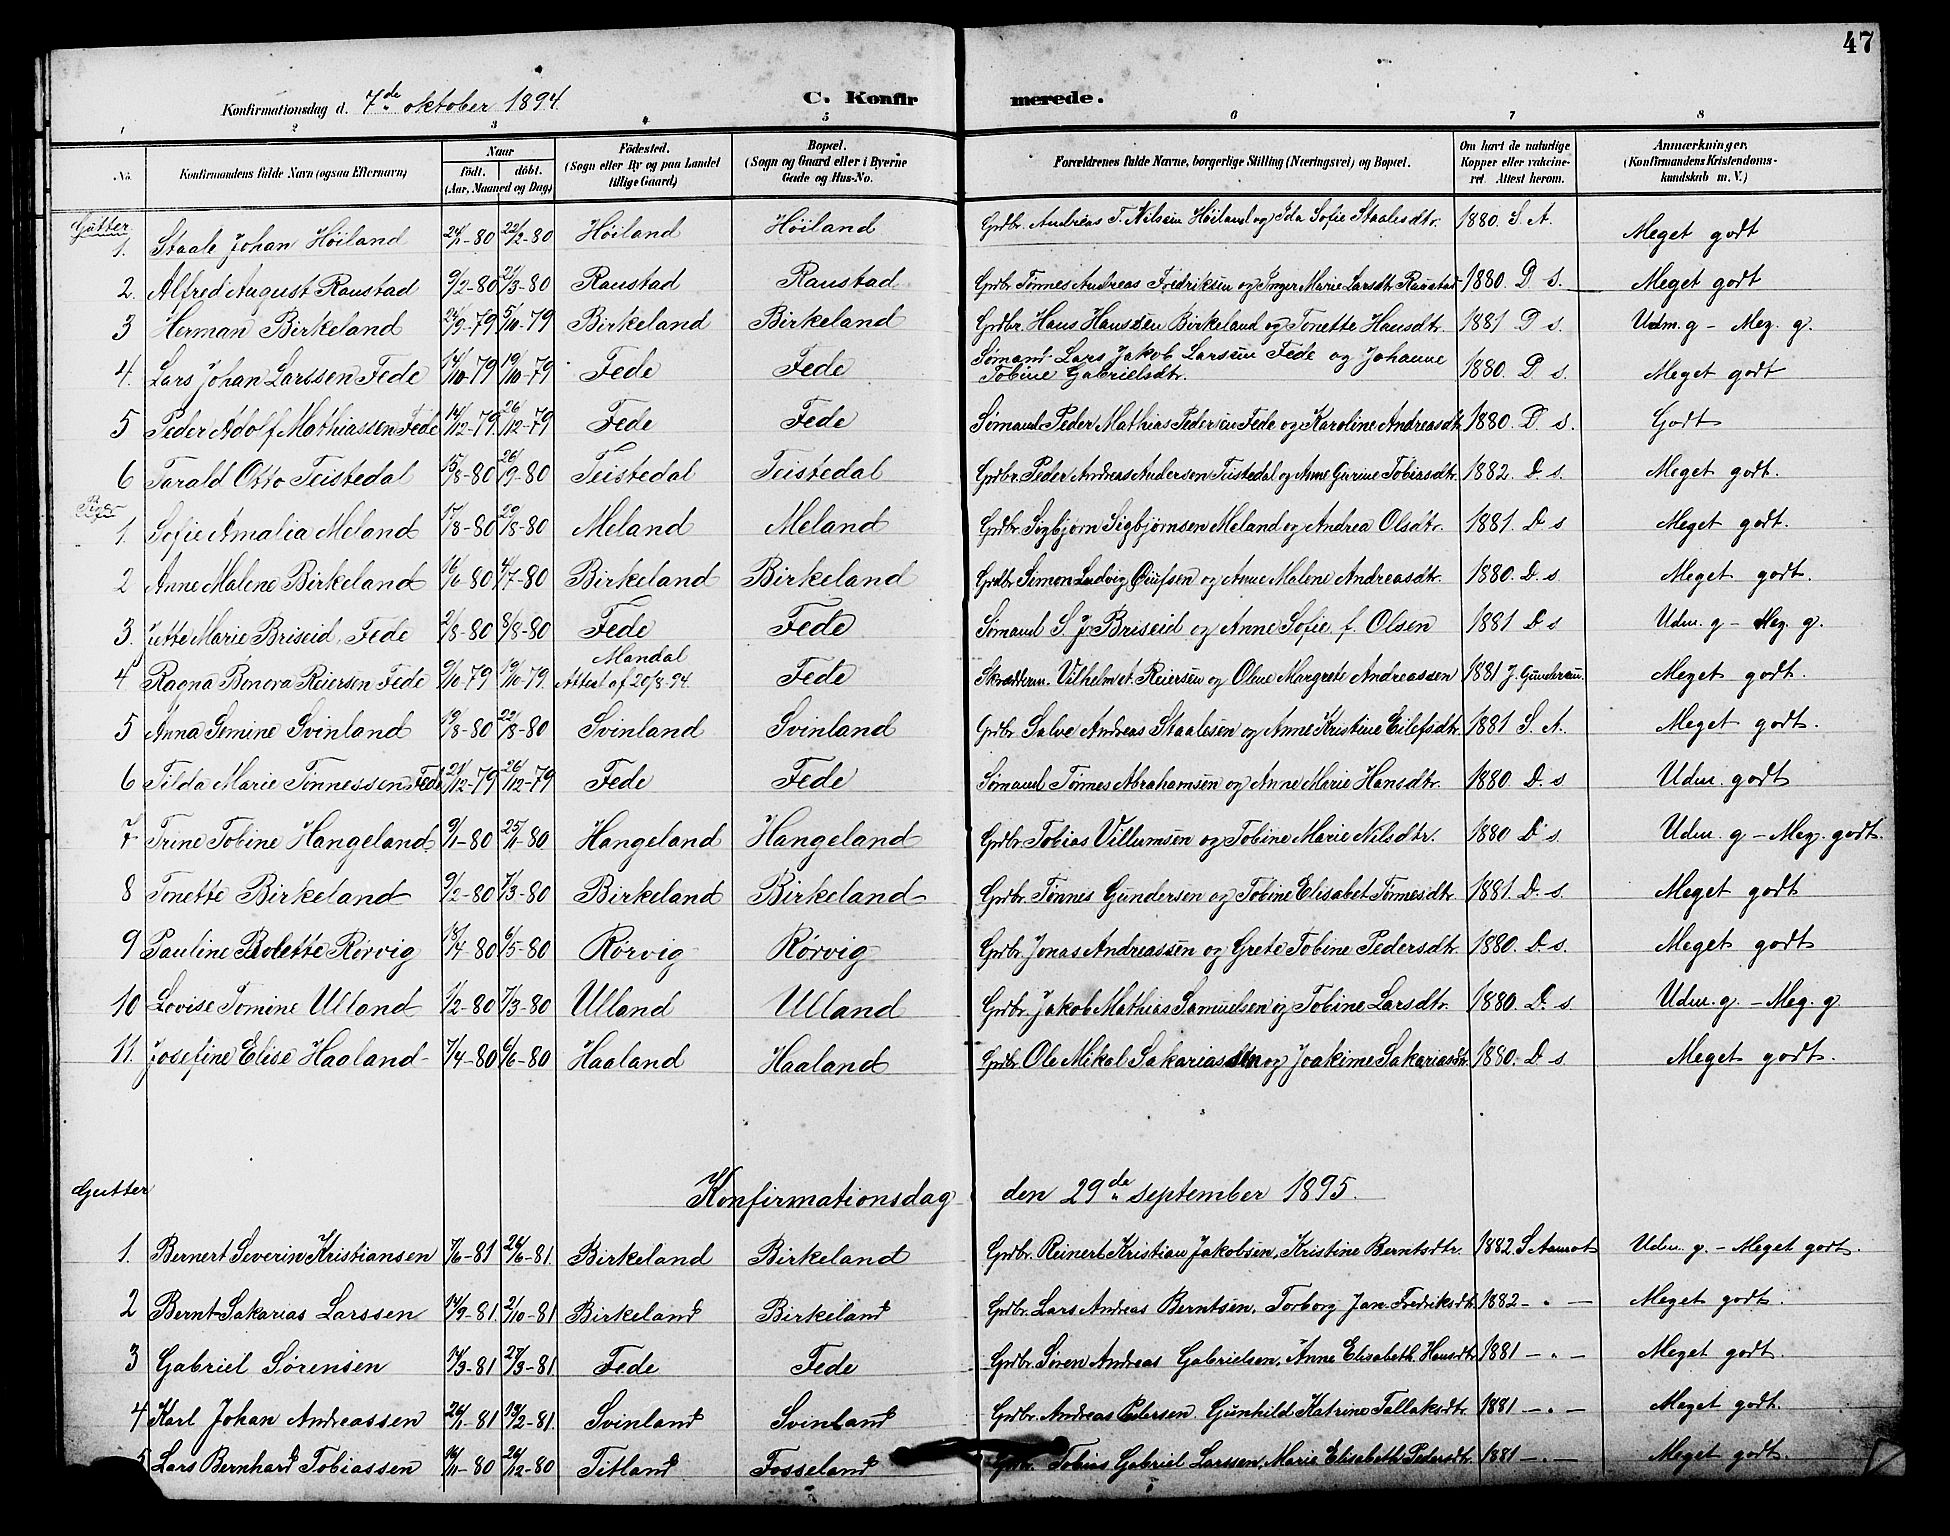 47
Konfirmationsdag d. 7de oktober 1894. C. Konfirmerede.
1 2 3 4 5 6 7 8
No. Konfirmandens fulde Navn (ogsaa Efternavn) Naar født. døbt. (Aar, Maaned og Dag) Fødested. (Sogn eller By og paa Landet tillige Gaard) Bopæl. (Sogn og Gaard eller i Byerne Gade og Hus-No. Forældrenes fulde Navne, borgerlige Stilling (Næringsvei) og Bopæl. Om havt de naturlige Kopper eller vakcineret. Attest herom. Anmærkninger. (Konfirmandens Kristendomskundskab m. V.)
Gutter
1. Staale Johan Höiland 24/1-80 22/2-80 Höiland Höiland Grdbr. Andreas T. Nilsen Höiland og Ida Sofie Staalesdtr. 1880. S. A. Meget godt
2. Alfred August Raustad 9/2-80 21/3-80 Raustad Raustad Grdbr. Tønnes Andreas Fredriksen og Inger Marie Larsdtr. Raustad 1880. D s. Meget godt
3 Herman Birkeland 24/9-79 5/10-79 Birkeland Birkeland Grdbr. Hans Hanssen Birkeland og Tonette Hansdtr. 1881 D s. Udm. g - Meg. g.
4. Lars Johan Larssen Fede 14/10-79 19/10-79 Fede Fede Sømand Lars Jakob Larssen Fede og Johanne Tobine Gabrielsdtr. 1880. D. s. Meget godt
5 Peder Adolf Mathiassen Fede 14/12-79. 26/12-79 Fede Fede Sømand Peder Mathias Pedersen Fede og Karoline Andreasdtr. 1880. D s. Godt
6 Tarald Otto Teistedal 15/8-80 26/9-80 Teistedal Teistedal Grdbr. Peder Andreas Andersen Teistedal og Anne Gurine Tobiasdtr. 1882. D s. Meget godt.
Piger
1. Sofie Amalia Meland 17/8-80 29/8-80 Meland Meland Grdbr. Sigbjørn Sigbjørnsen Meland og Andrea Olsdtr. 1881. D. s Meget godt.
2 Anne Malene Birkeland 16/6-80 4/7-80 Birkeland Birkeland Grdbr. Simon Ludvig og Anne Malene Andreasdtr. 1880. D. s Meget godt.
3. Jette Marie Briseid, Fede 2/8-80 8/8-80 Fede Fede Sømand S. J. Briseid og Anne Sofie f. Olsen 1881 D. s Udm. g - Meg. g.
4 Ragna Benora Reiersen Fede 9/10-79 19/10-79. Mandal Attest af 20/8-94. Fede Skræddm. Vilhelm A. Reiersen og Oline Margrete Andreassen 1881 J. Gundersen. Meget godt.
5 Anna Semine Svinland 19/8-80 22/8-80 Svinland Svinland Grdbr. Salve Andreas Staalesen og Anne Kristine Eilefsdtr. 1881 S. A. Meget godt.
6 Tilda Marie Tønnessen, Fede 21/12-79 26/12-79 Fede Fede Sømand Tønnes Abrahamsen og Anne Marie Hansdtr. 1880. D. s Udm. godt
7 Trine Tobine Hangeland 9/1-80 25/1-80 Hangeland Hangeland Grdbr. Tobias Villumsen og Tobine Marie Nilsdtr. 1880 D s. Udm. g - Meg. godt.
8 Tonette Birkeland 9/2-80 7/3-80 Birkeland Birkeland Grdbr. Tønnes Gundersen og Tobine Elisabet Tønnesdtr. 1881. D. s. Meget godt
9 Pauline Bolette Rørvig 18/4-80 6/5-80 Rørvig Rørvig Grdbr. Jonas Andreassen og Grete Tobine Pedersdtr. 1880. D. s. Meget godt
10 Lovise Tomine Ulland 1/2-80 7/3-80 Ulland Ulland Grdbr. Jakob Mathias Samuelsen og Tobine Larsdtr. 1880. D. s Udm. g. - Meg. g
11. Josefine Elise Haaland 7/4-80 6/6-80 Haaland Haaland Grdbr. Ole Mikal Sakariassen og Joakime Sakariasdtr. 1880. D s Meget godt.
Gutter Konfirmationsdag den 29de september 1895.
1. Bernert Severin Kristiansen 7/6-81 26/6-81. Birkeland Birkeland Grdbr. Reinert Kristian Jakobsen, Kristine Berntsdtr. 1882. S Aamot Udm. g. - Meget godt.
2 Bernt Sakarias Larssen 14/9-81. 2/10-81 Birkeland Birkeland Grdbr. Lars Andreas Berntsen, Torborg Jan. Fredriksdtr. 1882 - " - Meget godt.
3 Gabriel Sørensen 14/3-81 27/3-81. Fede Fede Grdbr. Søren Andreas Gabrielsen, Anne Elisabeth Hansdtr. 1881 - " - Meget godt.
4 Karl Johan Andreassen 26/1-81 13/2-81. Svinland Svinland Grdbr. Andreas Pedersen. Gunhild Katrine Tallaksdtr. 1881 - " - Meget godt.
5 Lars Bernhard Tobiassen 16/11-80 26/12-80 Titland Fosseland Grdbr. Tobias Gabriel Larssen, Marie Elisabeth Pedersdtr. 1881 - " - Meget godt.